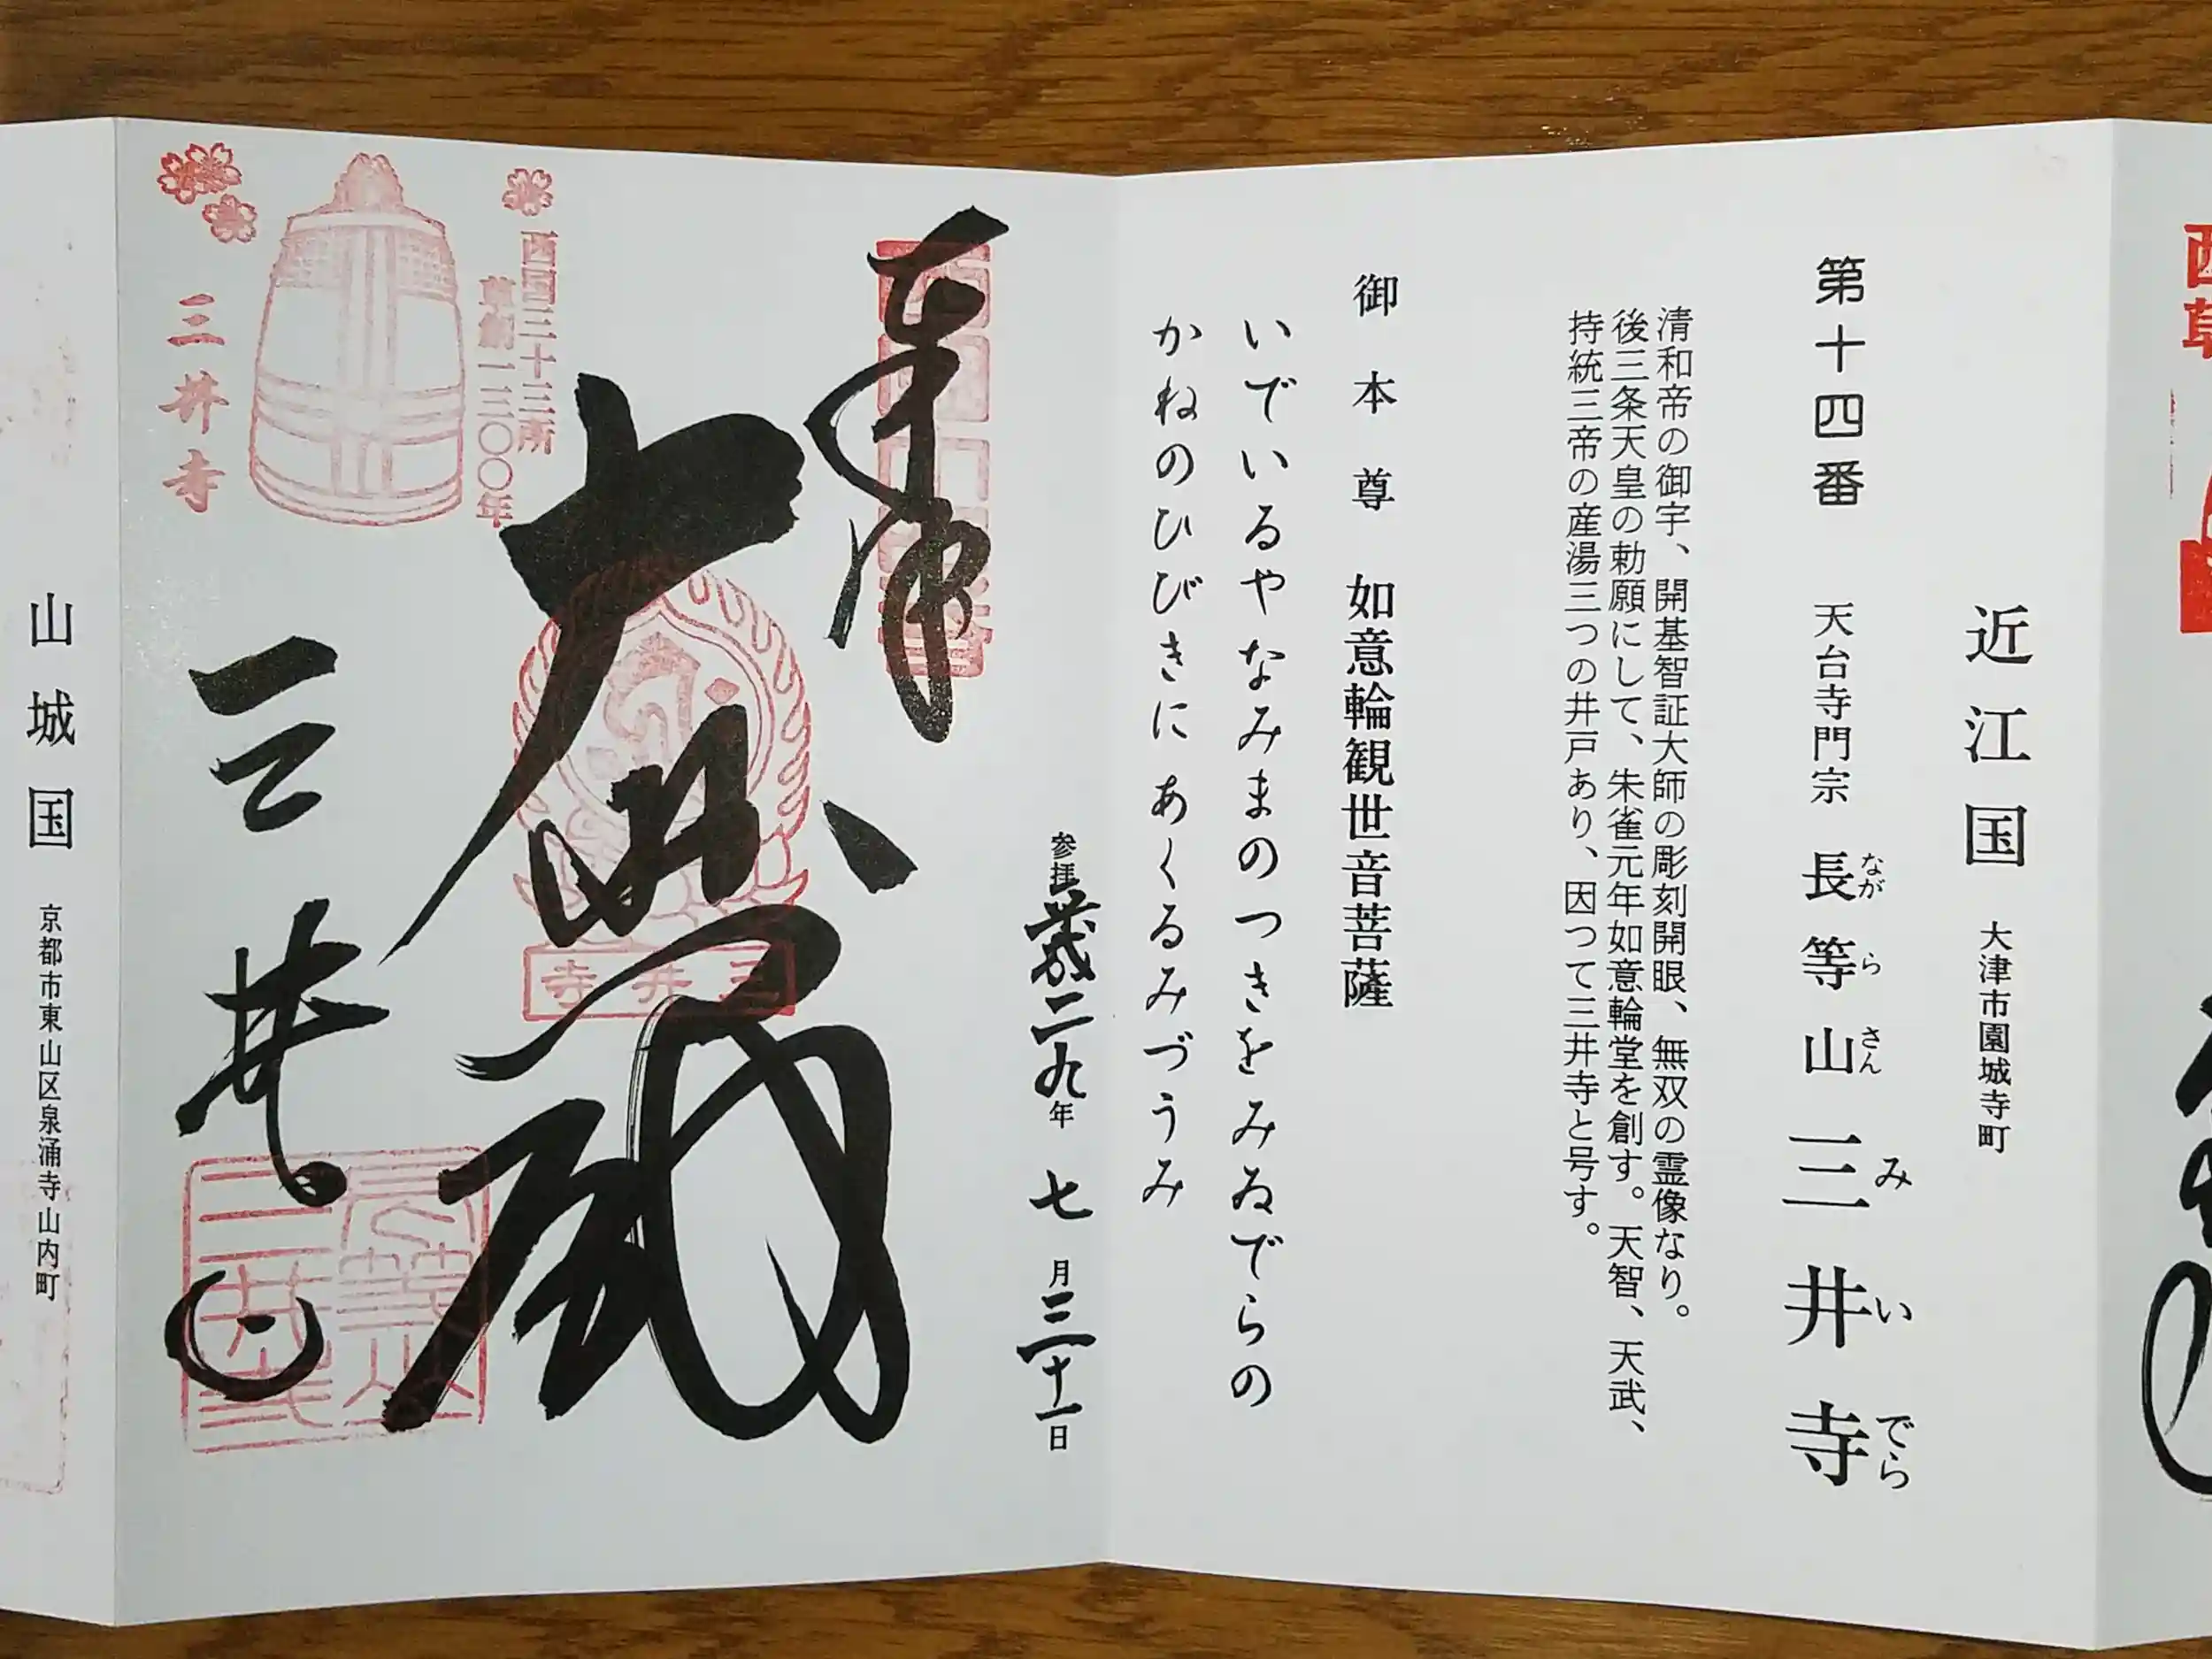 近江国 大津市園城寺町
第十四番 天台寺門宗 長等山三井寺
ながらさんみいでら
清和帝の御宇、開基智証大師の彫刻開眼、無双の霊像なり。
後三条天皇の勅願にして、朱雀元年如意輪堂を創す。天智、天武、
持統三帝の産湯三つの井戸あり、因つて三井寺と号す。
御本尊 如意輪観世音菩薩
いでいるやなみまのつきをみゐでらの
かねのひびきにあくるみづうみ
参拝 二九年 七月三十一日
奉拝
大悲殿
三井寺
西国三十三所
草創一三〇〇年
三井寺
三井寺
山城国 京都市東山区泉涌寺山内町